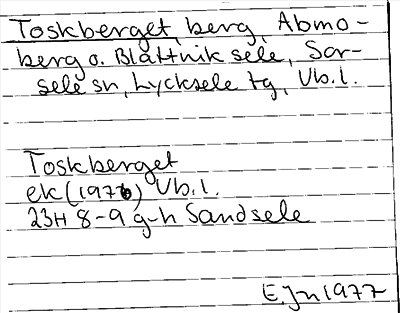 Toskberget, berg, Abmo-
berg o. Blattnik sele, Sor-
sele sn, Lycksele tg, Vb. l.
Toskberget
ek (1976) Vb. l.
23H 8-9 g-h Sandsele
E. Jn 1977